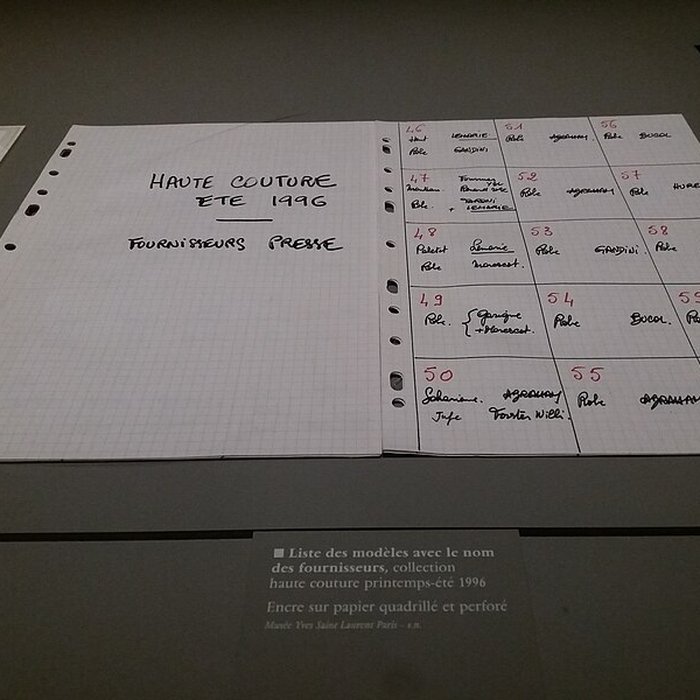 HAUTE COUTURE
ETE 1996
FOURNISSEURS PRESSE
46
Haut LEMARIE
Robe GANDINI
51
Robe ABRAHAM
56
Robe BUCOL
47
Robe. + TARONI
LEMARIE
52
Robe ABRAHAM
57
Robe HUREL
48
Paletot Lemarie
Robe Marescot.
53
Robe GANDINI.
58
Robe
49
Robe. Garigue
+ Marescot.
54
Robe BUCOL.
59
50
Saharienne. ABRAHAM
Jupe Forster Willi.
55
Robe ABRAHAM
■ Liste des modèles avec le nom
des fournisseurs, collection
haute couture printemps-été 1996
Encre sur papier quadrillé et perforé
Musée Yves Saint Laurent Paris - s.n.